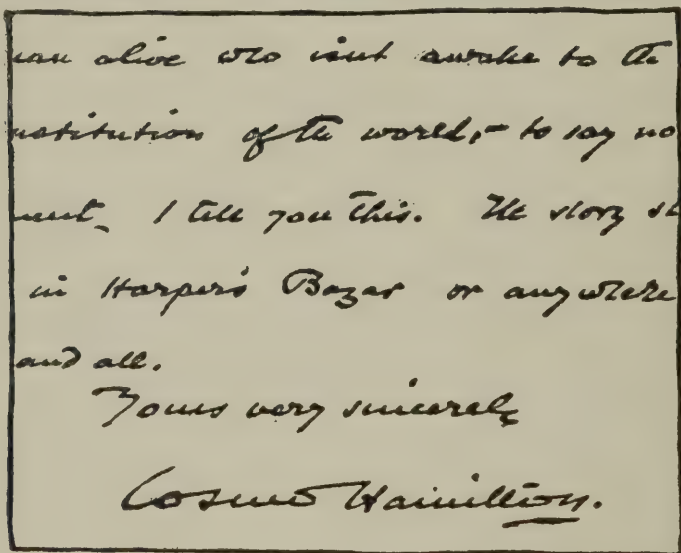 man alive who isnt awake to the
nstitution of the world, – to say no
ment. I tell you this. The story s
in Harper's Bazar or anywhere
and all.
Yours very sincerely
Cosmo Hamilton.